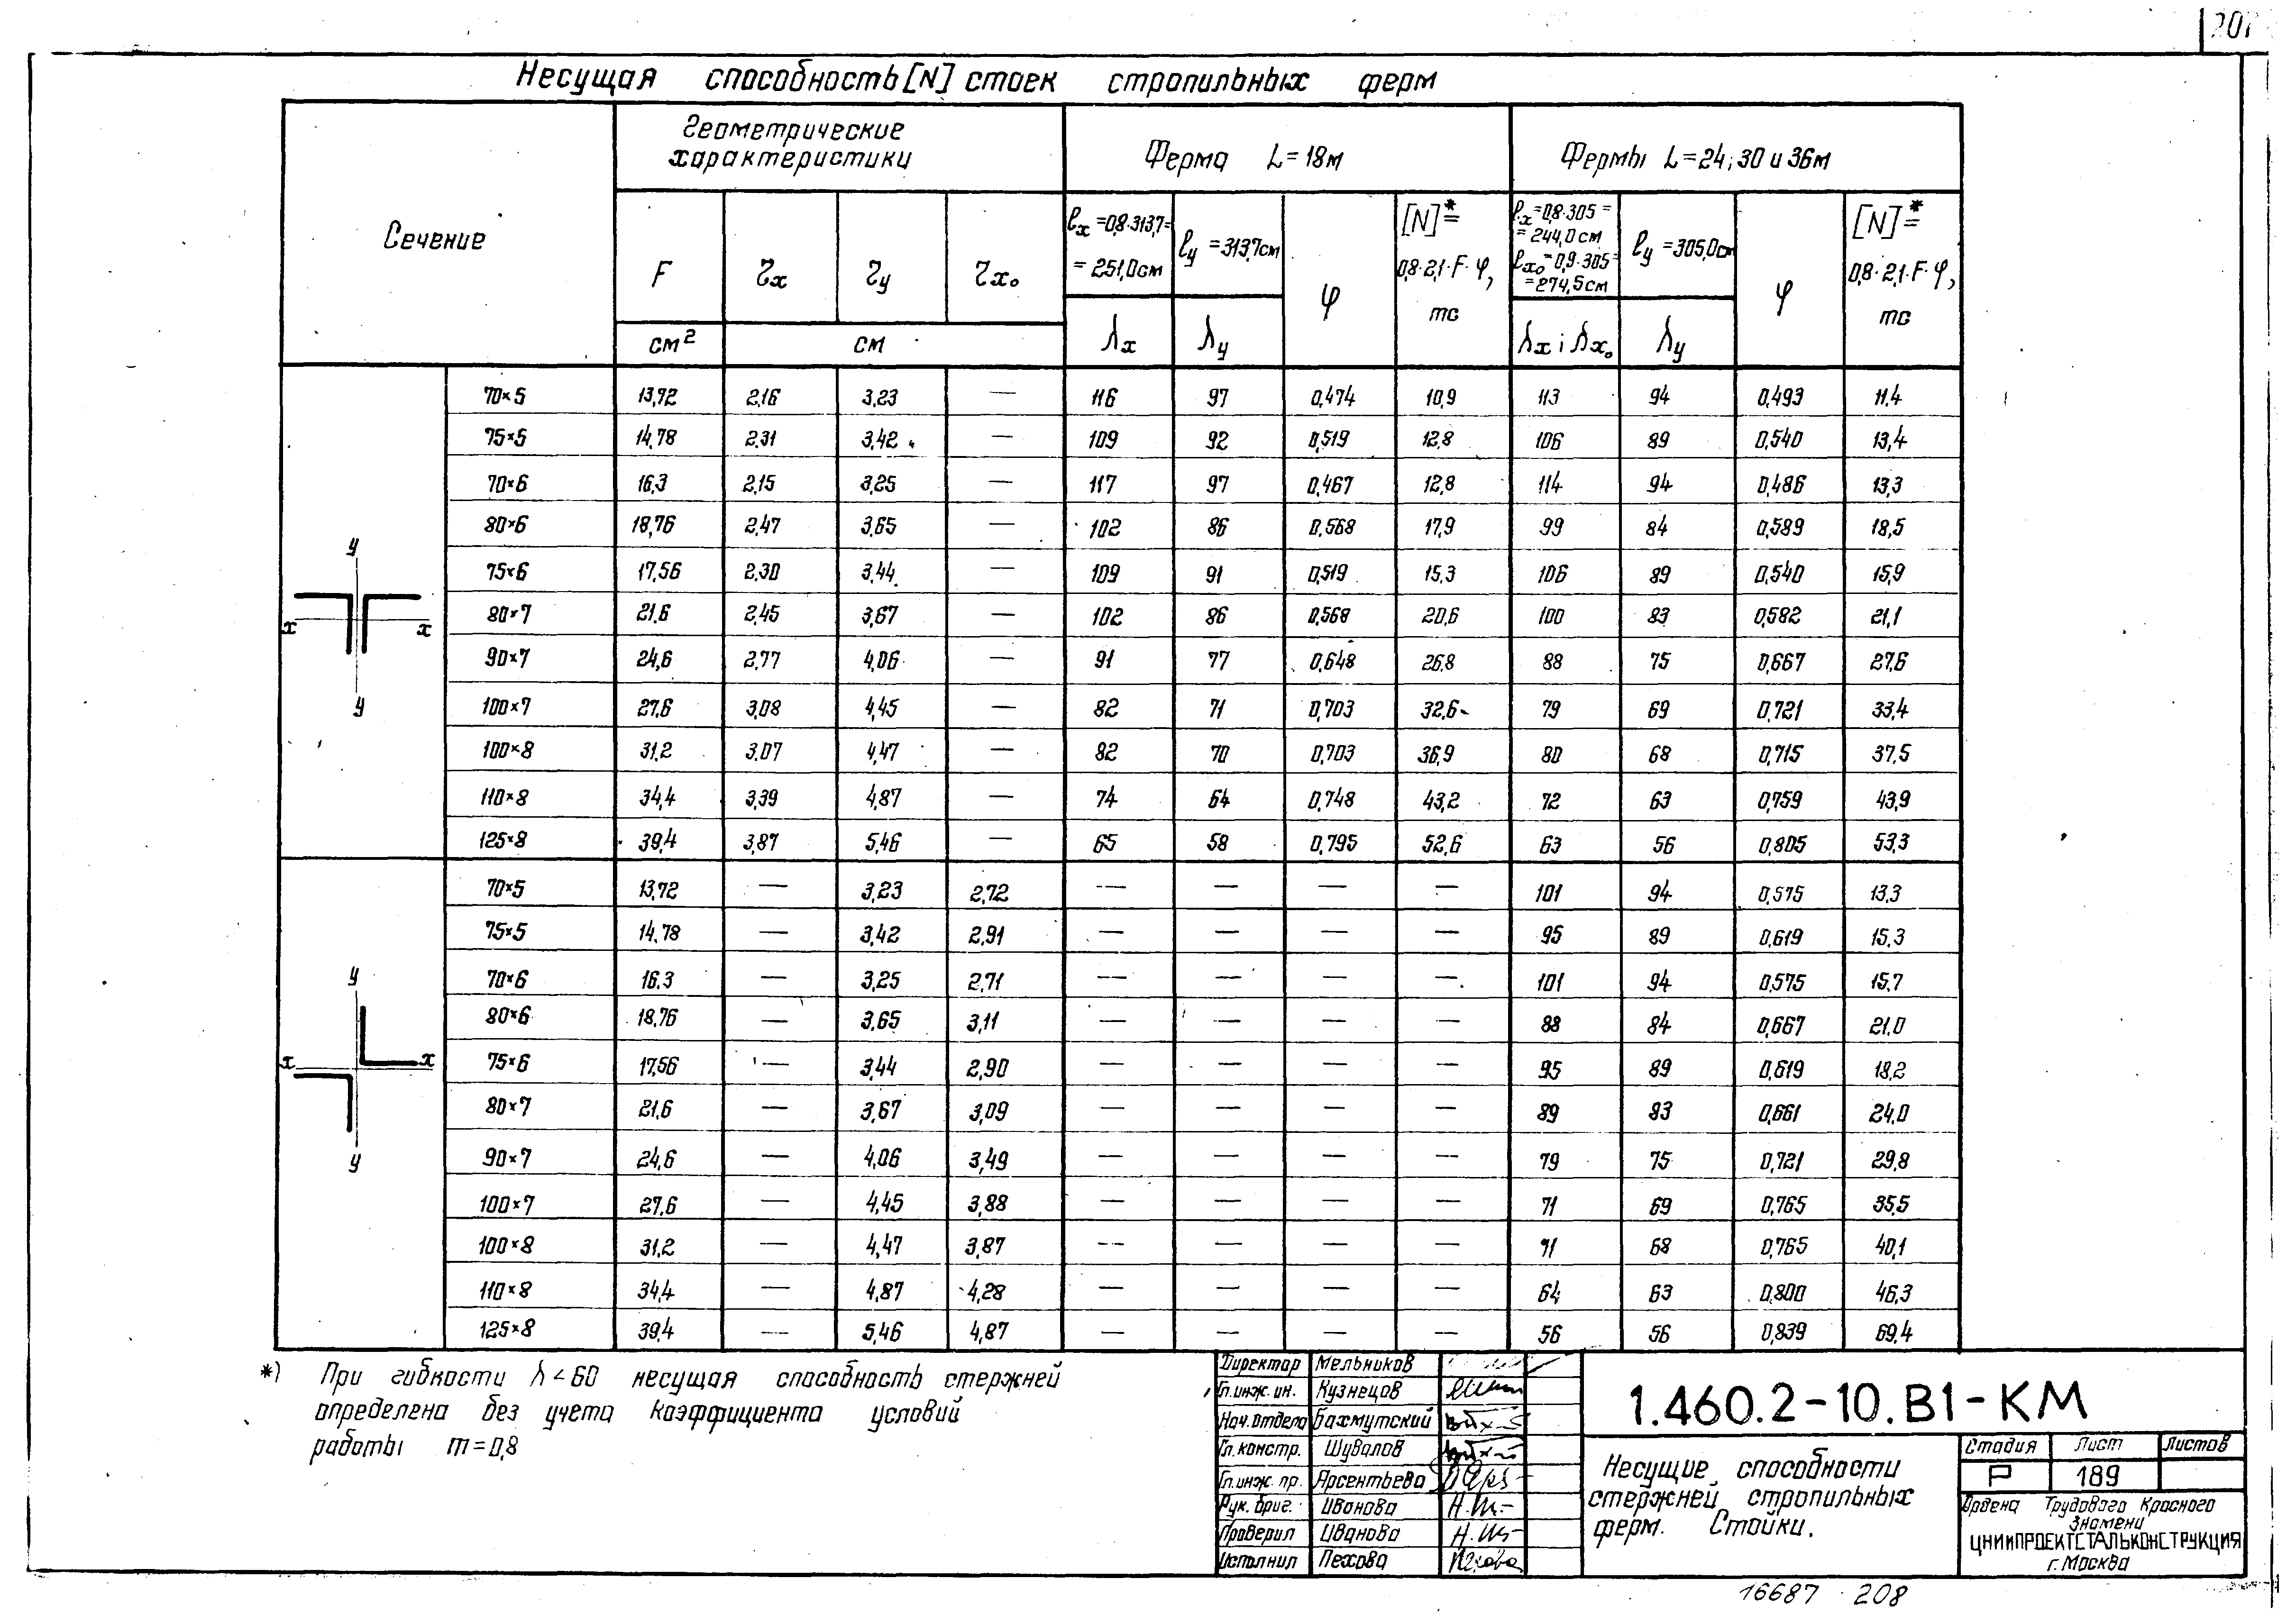 207
Несущая способность [N] стоек стропильных ферм
Сечение
Геометрические характеристики
Ферма L=18м
Фермы L=24; 30 и 36м
F
см²
rx
ry
rx₀
см
ℓx =0,8·313,7= =251,0см
λx
ℓy =313,7см
λy
φ
[N]*= 0,8·2,1·F·φ, тс
ℓx=0,8·305= =244,0см ℓx₀=0,9·305= =274,5см
λx; λx₀
ℓy =305,0см
λy
φ
[N]*= 0,8·2,1·F·φ, тс
y
x x
y
70×5 13,72 2,16 3,23 — 116 97 0,474 10,9 113 94 0,493 11.4
75×5 14,78 2,31 3,42 — 109 92 0,519 12,8 106 89 0,540 13,4
70×6 16,3 2,15 3,25 — 117 97 0,467 12,8 114 94 0,486 13,3
80×6 18,76 2,47 3,65 — 102 86 0,568 17,9 99 84 0,589 18,5
75×6 17,56 2,30 3,44 — 109 91 0,519 15,3 106 89 0,540 15,9
80×7 21,6 2,45 3,67 — 102 86 0,568 20,6 100 83 0,582 21,1
90×7 24,6 2,77 4,06 — 91 77 0,648 26,8 88 75 0,667 27,6
100×7 27,6 3,08 4,45 — 82 71 0,703 32,6 79 69 0,721 33,4
100×8 31,2 3,07 4,47 — 82 70 0,703 36,9 80 68 0,715 37,5
110×8 34,4 3,39 4,87 — 74 64 0,748 43,2 72 63 0,759 43,9
125×8 39,4 3,87 5,46 — 65 58 0,795 52,6 63 56 0,805 53,3
y
x x
y
70×5 13,72 — 3,23 2,72 — — — — 101 94 0,575 13.3
75×5 14,78 — 3,42 2,91 — — — — 95 89 0,619 15,3
70×6 16,3 — 3,25 2,71 — — — — 101 94 0,575 15,7
80×6 18,76 — 3,65 3,11 — — — — 88 84 0,667 21,0
75×6 17,56 — 3,44 2,90 — — — — 95 89 0,619 18,2
80×7 21,6 — 3,67 3,09 — — — — 89 83 0,661 24,0
90×7 24,6 — 4,06 3,49 — — — — 79 75 0,721 29,8
100×7 27,6 — 4,45 3,88 — — — — 71 69 0,765 35,5
100×8 31,2 — 4,47 3,87 — — — — 71 68 0,765 40,1
110×8 34,4 — 4,87 4,28 — — — — 64 63 0,800 46,3
125×8 39,4 — 5,46 4,87 — — — — 56 56 0,839 69,4
*) При гибкости λ<60 несущая способность стержней
определена без учета коэффициента условий
работы m=0,8
Директор Мельников
Гл.инж.ин. Кузнецов
Нач.отдела Бахмутский
Гл.констр. Шувалов
Гл.инж.пр. Арсентьева
Рук. бриг. Иванова
Проверил Иванова
Исполнил Пехова
1.460.2-10.В1-КМ
Несущие способности
стержней стропильных
ферм. Стойки.
Стадия Лист Листов
Р 189
Ордена Трудового Красного
Знамени
ЦНИИПРОЕКТСТАЛЬКОНСТРУКЦИЯ
г.Москва
16687 208